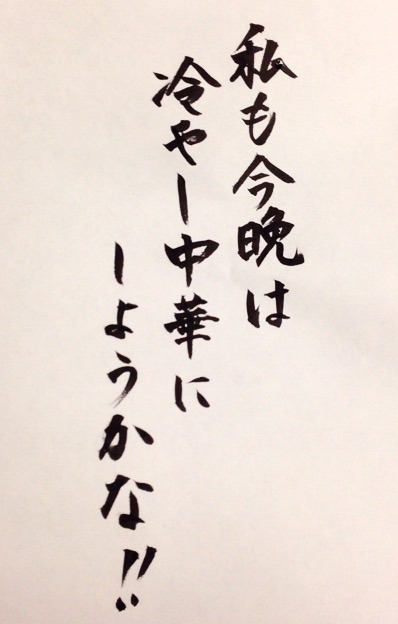 私も今晩は
冷やし中華に
しようかな!!